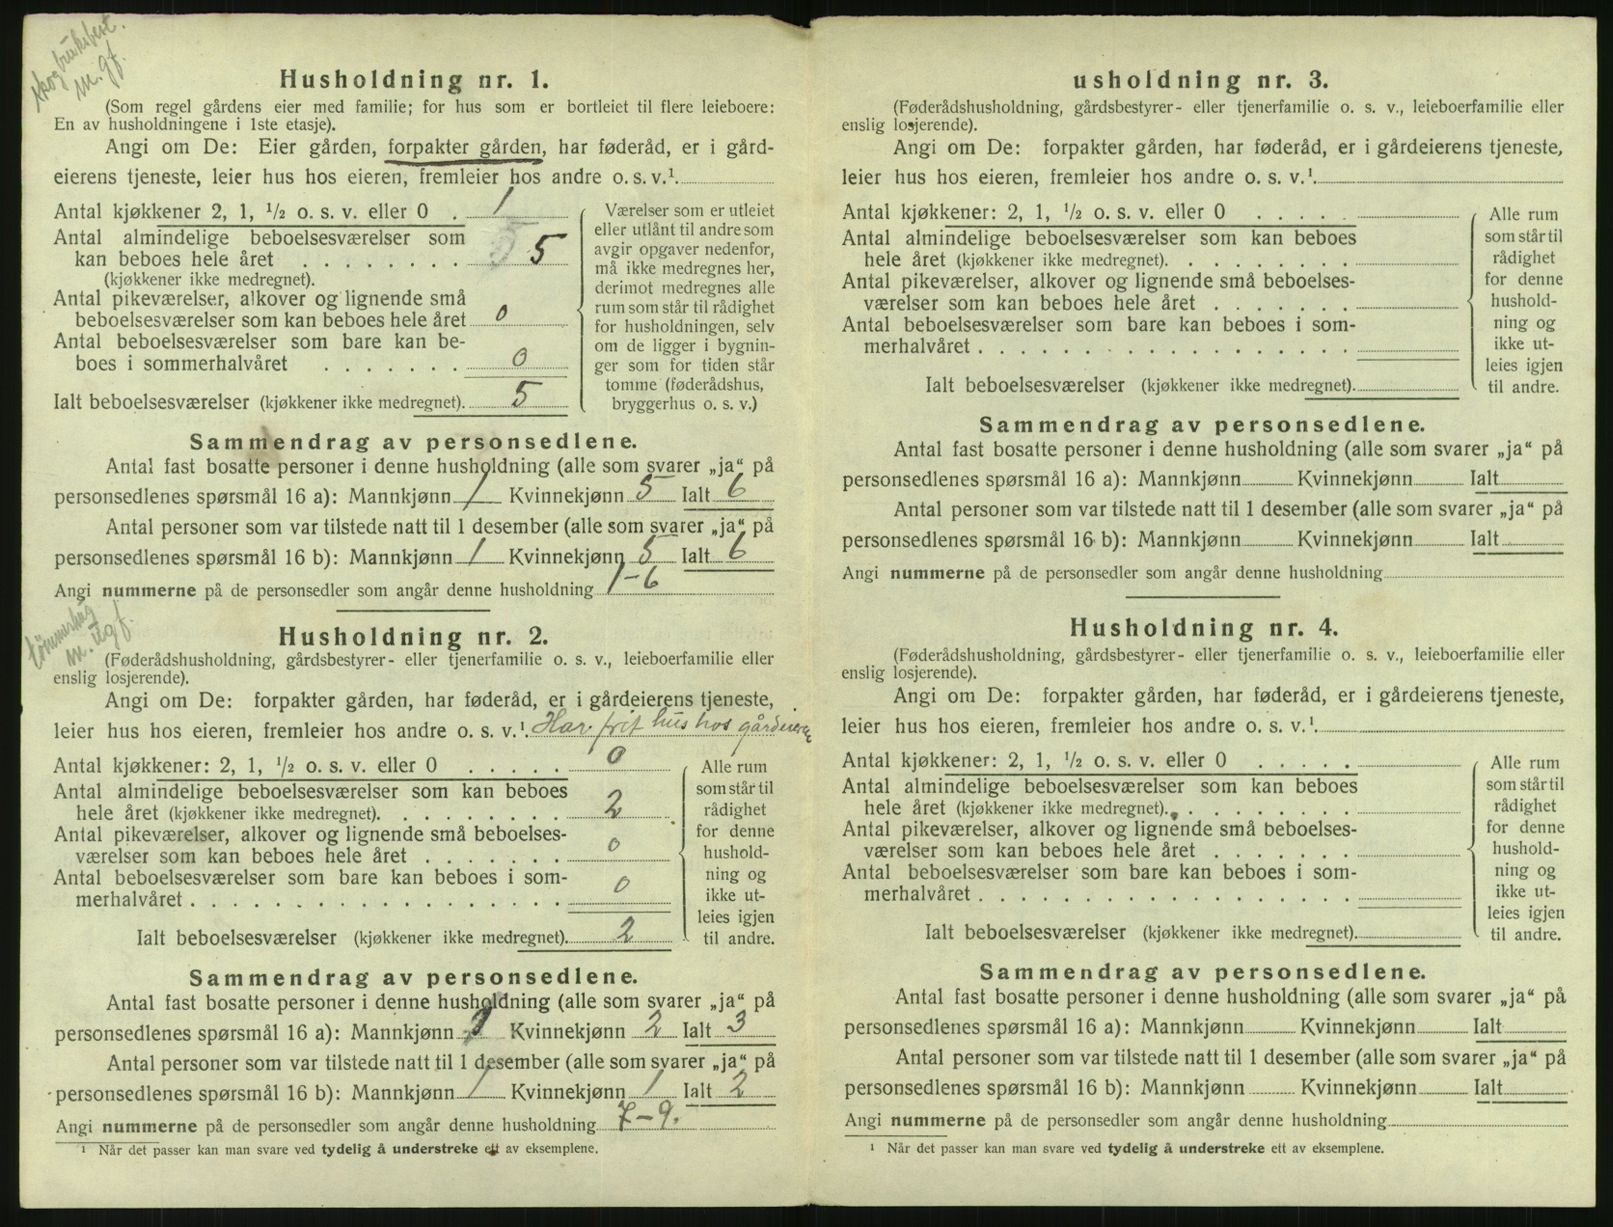 skogbruksbest.
m. gf.
Husholdning nr. 1.
(Som regel gårdens eier med familie; for hus som er bortleiet til flere leieboere:
En av husholdningene i 1ste etasje).
Angi om De: Eier gården, forpakter gården, har føderåd, er i gård-
eierens tjeneste, leier hus hos eieren, fremleier hos andre o. s. v.¹
Antal kjøkkener 2, 1, ½ o. s. v. eller 0 . 1
Antal almindelige beboelsesværelser som
kan beboes hele året . . . . . . . . 5 5
(kjøkkener ikke medregnet).
Antal pikeværelser, alkover og lignende små
beboelsesværelser som kan beboes hele året 0
Antal beboelsesværelser som bare kan be-
boes i sommerhalvåret . . . . . . . 0
Ialt beboelsesværelser (kjøkkener ikke medregnet). 5
Værelser som er utleiet
eller utlånt til andre som
avgir opgaver nedenfor,
må ikke medregnes her,
derimot medregnes alle
rum som står til rådighet
for husholdningen, selv
om de ligger i bygnin-
ger som for tiden står
tomme (føderådshus,
bryggerhus o. s. v.)
Sammendrag av personsedlene.
Antal fast bosatte personer i denne husholdning (alle som svarer „ja“ på
personsedlenes spørsmål 16 a): Mannkjønn 1 Kvinnekjønn 5 Ialt 6
Antal personer som var tilstede natt til 1 desember (alle som svarer „ja“ på
personsedlenes spørsmål 16 b): Mannkjønn 1 Kvinnekjønn 5 Ialt 6
Angi nummerne på de personsedler som angår denne husholdning 1-6
tømmerhug
Husholdning nr. 2.
(Føderådshusholdning, gårdsbestyrer- eller tjenerfamilie o. s. v., leieboerfamilie eller
enslig losjerende).
Angi om De: forpakter gården, har føderåd, er i gårdeierens tjeneste,
leier hus hos eieren, fremleier hos andre o. s. v.¹ Har frit hus hos gårdeieren
Antal kjøkkener: 2, 1, ½ o. s. v. eller 0 . . . . . 0
Antal almindelige beboelsesværelser som kan beboes
hele året (kjøkkener ikke medregnet). . . . . . . . 2
Antal pikeværelser, alkover og lignende små beboelses-
værelser som kan beboes hele året . . . . . . . 0
Antal beboelsesværelser som bare kan beboes i som-
merhalvåret . . . . . . . . . . . . . . . . . . 0
Ialt beboelsesværelser (kjøkkener ikke medregnet). 2
Alle rum
som står til
rådighet
for denne
hushold-
ning og
ikke ut-
leies igjen
til andre.
Sammendrag av personsedlene.
Antal fast bosatte personer i denne husholdning (alle som svarer „ja“ på
personsedlenes spørsmål 16 a): Mannkjønn 1 Kvinnekjønn 2 Ialt 3
Antal personer som var tilstede natt til 1 desember (alle som svarer „ja“ på
personsedlenes spørsmål 16 b): Mannkjønn 1 Kvinnekjønn 1 Ialt 2
Angi nummerne på de personsedler som angår denne husholdning 7-9.
¹ Når det passer kan man svare ved tydelig å understreke ett av eksemplene.
usholdning nr. 3.
(Føderådshusholdning, gårdsbestyrer- eller tjenerfamilie o. s. v., leieboerfamilie eller
enslig losjerende).
Angi om De: forpakter gården, har føderåd, er i gårdeierens tjeneste,
leier hus hos eieren, fremleier hos andre o. s. v.¹
Antal kjøkkener: 2, 1, ½ o. s. v. eller 0 . . . . .
Antal almindelige beboelsesværelser som kan beboes
hele året (kjøkkener ikke medregnet). . . . . . . .
Antal pikeværelser, alkover og lignende små beboelses-
værelser som kan beboes hele året . . . . . . .
Antal beboelsesværelser som bare kan beboes i som-
merhalvåret . . . . . . . . . . . . . . . . . .
Ialt beboelsesværelser (kjøkkener ikke medregnet).
Alle rum
som står til
rådighet
for denne
hushold-
ning og
ikke ut-
leies igjen
til andre.
Sammendrag av personsedlene.
Antal fast bosatte personer i denne husholdning (alle som svarer „ja“ på
personsedlenes spørsmål 16 a): Mannkjønn Kvinnekjønn Ialt
Antal personer som var tilstede natt til 1 desember (alle som svarer „ja“ på
personsedlenes spørsmål 16 b): Mannkjønn Kvinnekjønn Ialt
Angi nummerne på de personsedler som angår denne husholdning
Husholdning nr. 4.
(Føderådshusholdning, gårdsbestyrer- eller tjenerfamilie o. s. v., leieboerfamilie eller
enslig losjerende).
Angi om De: forpakter gården, har føderåd, er i gårdeierens tjeneste,
leier hus hos eieren, fremleier hos andre o. s. v.¹
Antal kjøkkener: 2, 1, ½ o. s. v. eller 0 . . . . .
Antal almindelige beboelsesværelser som kan beboes
hele året (kjøkkener ikke medregnet). . . . . . . .
Antal pikeværelser, alkover og lignende små beboelses-
værelser som kan beboes hele året . . . . . . .
Antal beboelsesværelser som bare kan beboes i som-
merhalvåret . . . . . . . . . . . . . . . . . .
Ialt beboelsesværelser (kjøkkener ikke medregnet).
Alle rum
som står til
rådighet
for denne
hushold-
ning og
ikke ut-
leies igjen
til andre.
Sammendrag av personsedlene.
Antal fast bosatte personer i denne husholdning (alle som svarer „ja“ på
personsedlenes spørsmål 16 a): Mannkjønn Kvinnekjønn Ialt
Antal personer som var tilstede natt til 1 desember (alle som svarer „ja“ på
personsedlenes spørsmål 16 b): Mannkjønn Kvinnekjønn Ialt
Angi nummerne på de personsedler som angår denne husholdning
¹ Når det passer kan man svare ved tydelig å understreke ett av eksemplene.